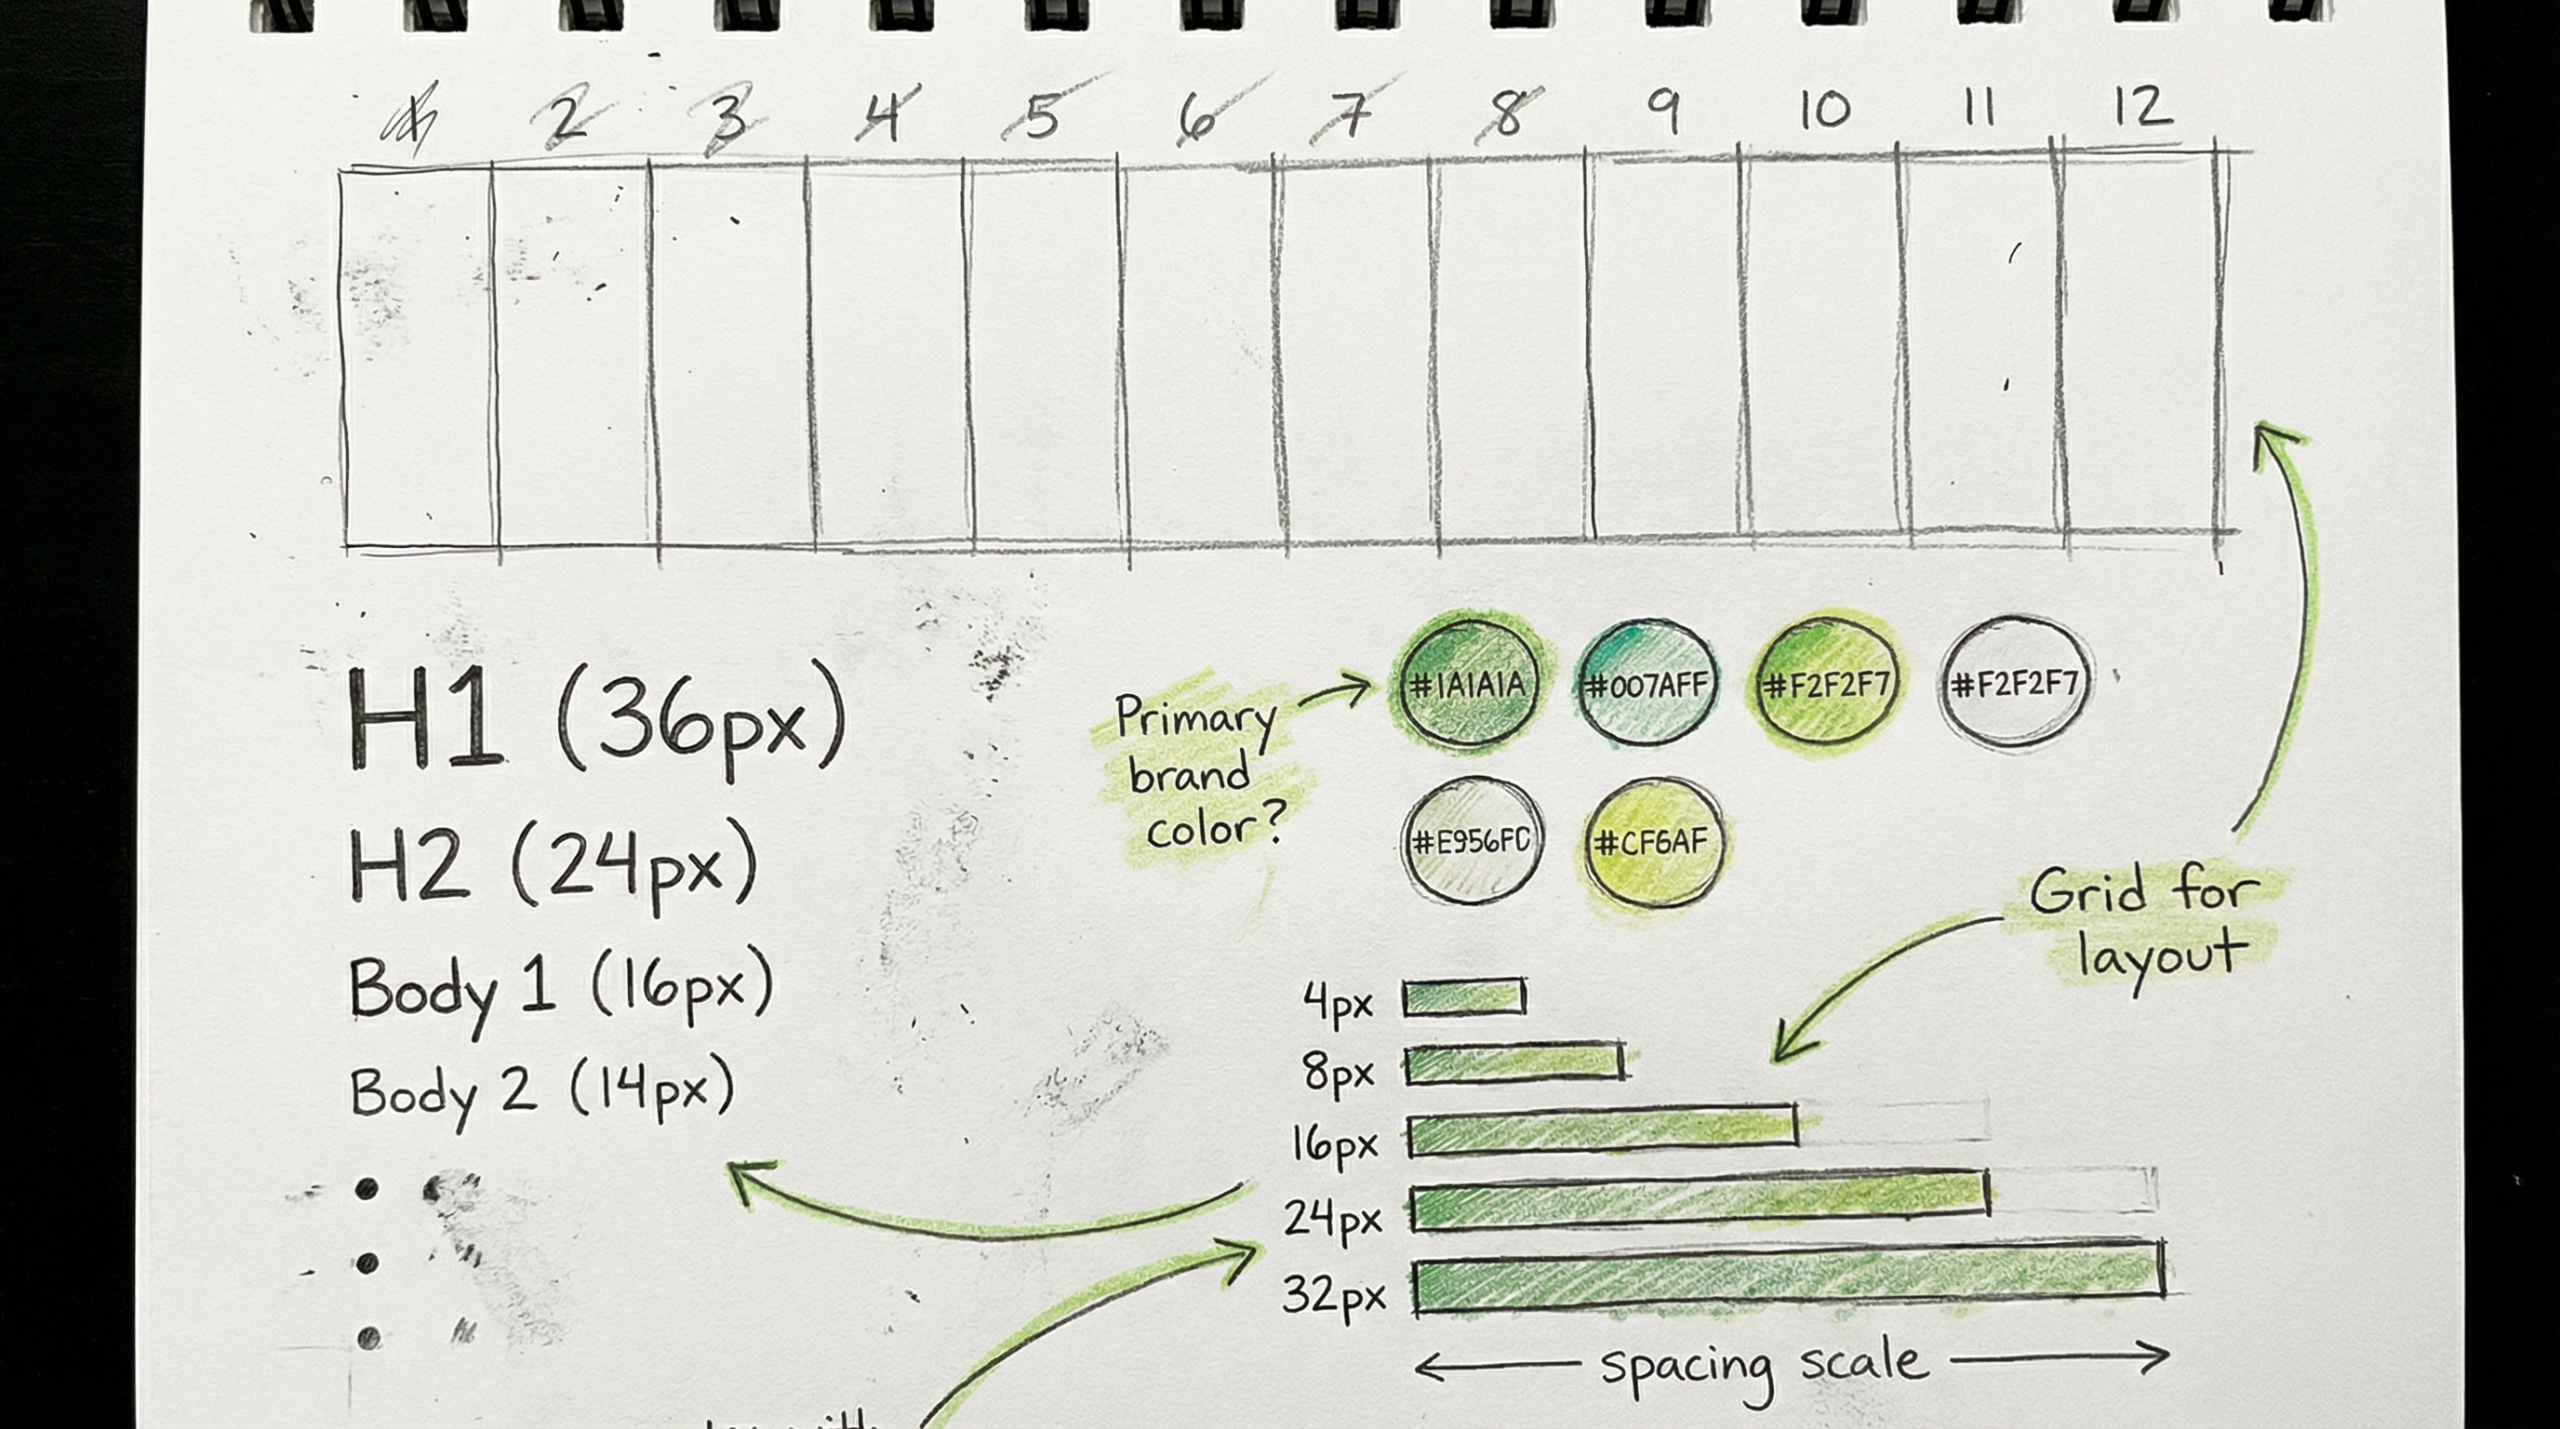 1 2 3 4 5 6 7 8 9 10 11 12
H1 (36px)
H2 (24px)
Body 1 (16px)
Body 2 (14px)
Primary
brand
color?
#1A1A1A #007AFF #F2F2F7 #F2F2F7
#E956FC #CF6AF
Grid for
layout
4px
8px
16px
24px
32px
spacing scale